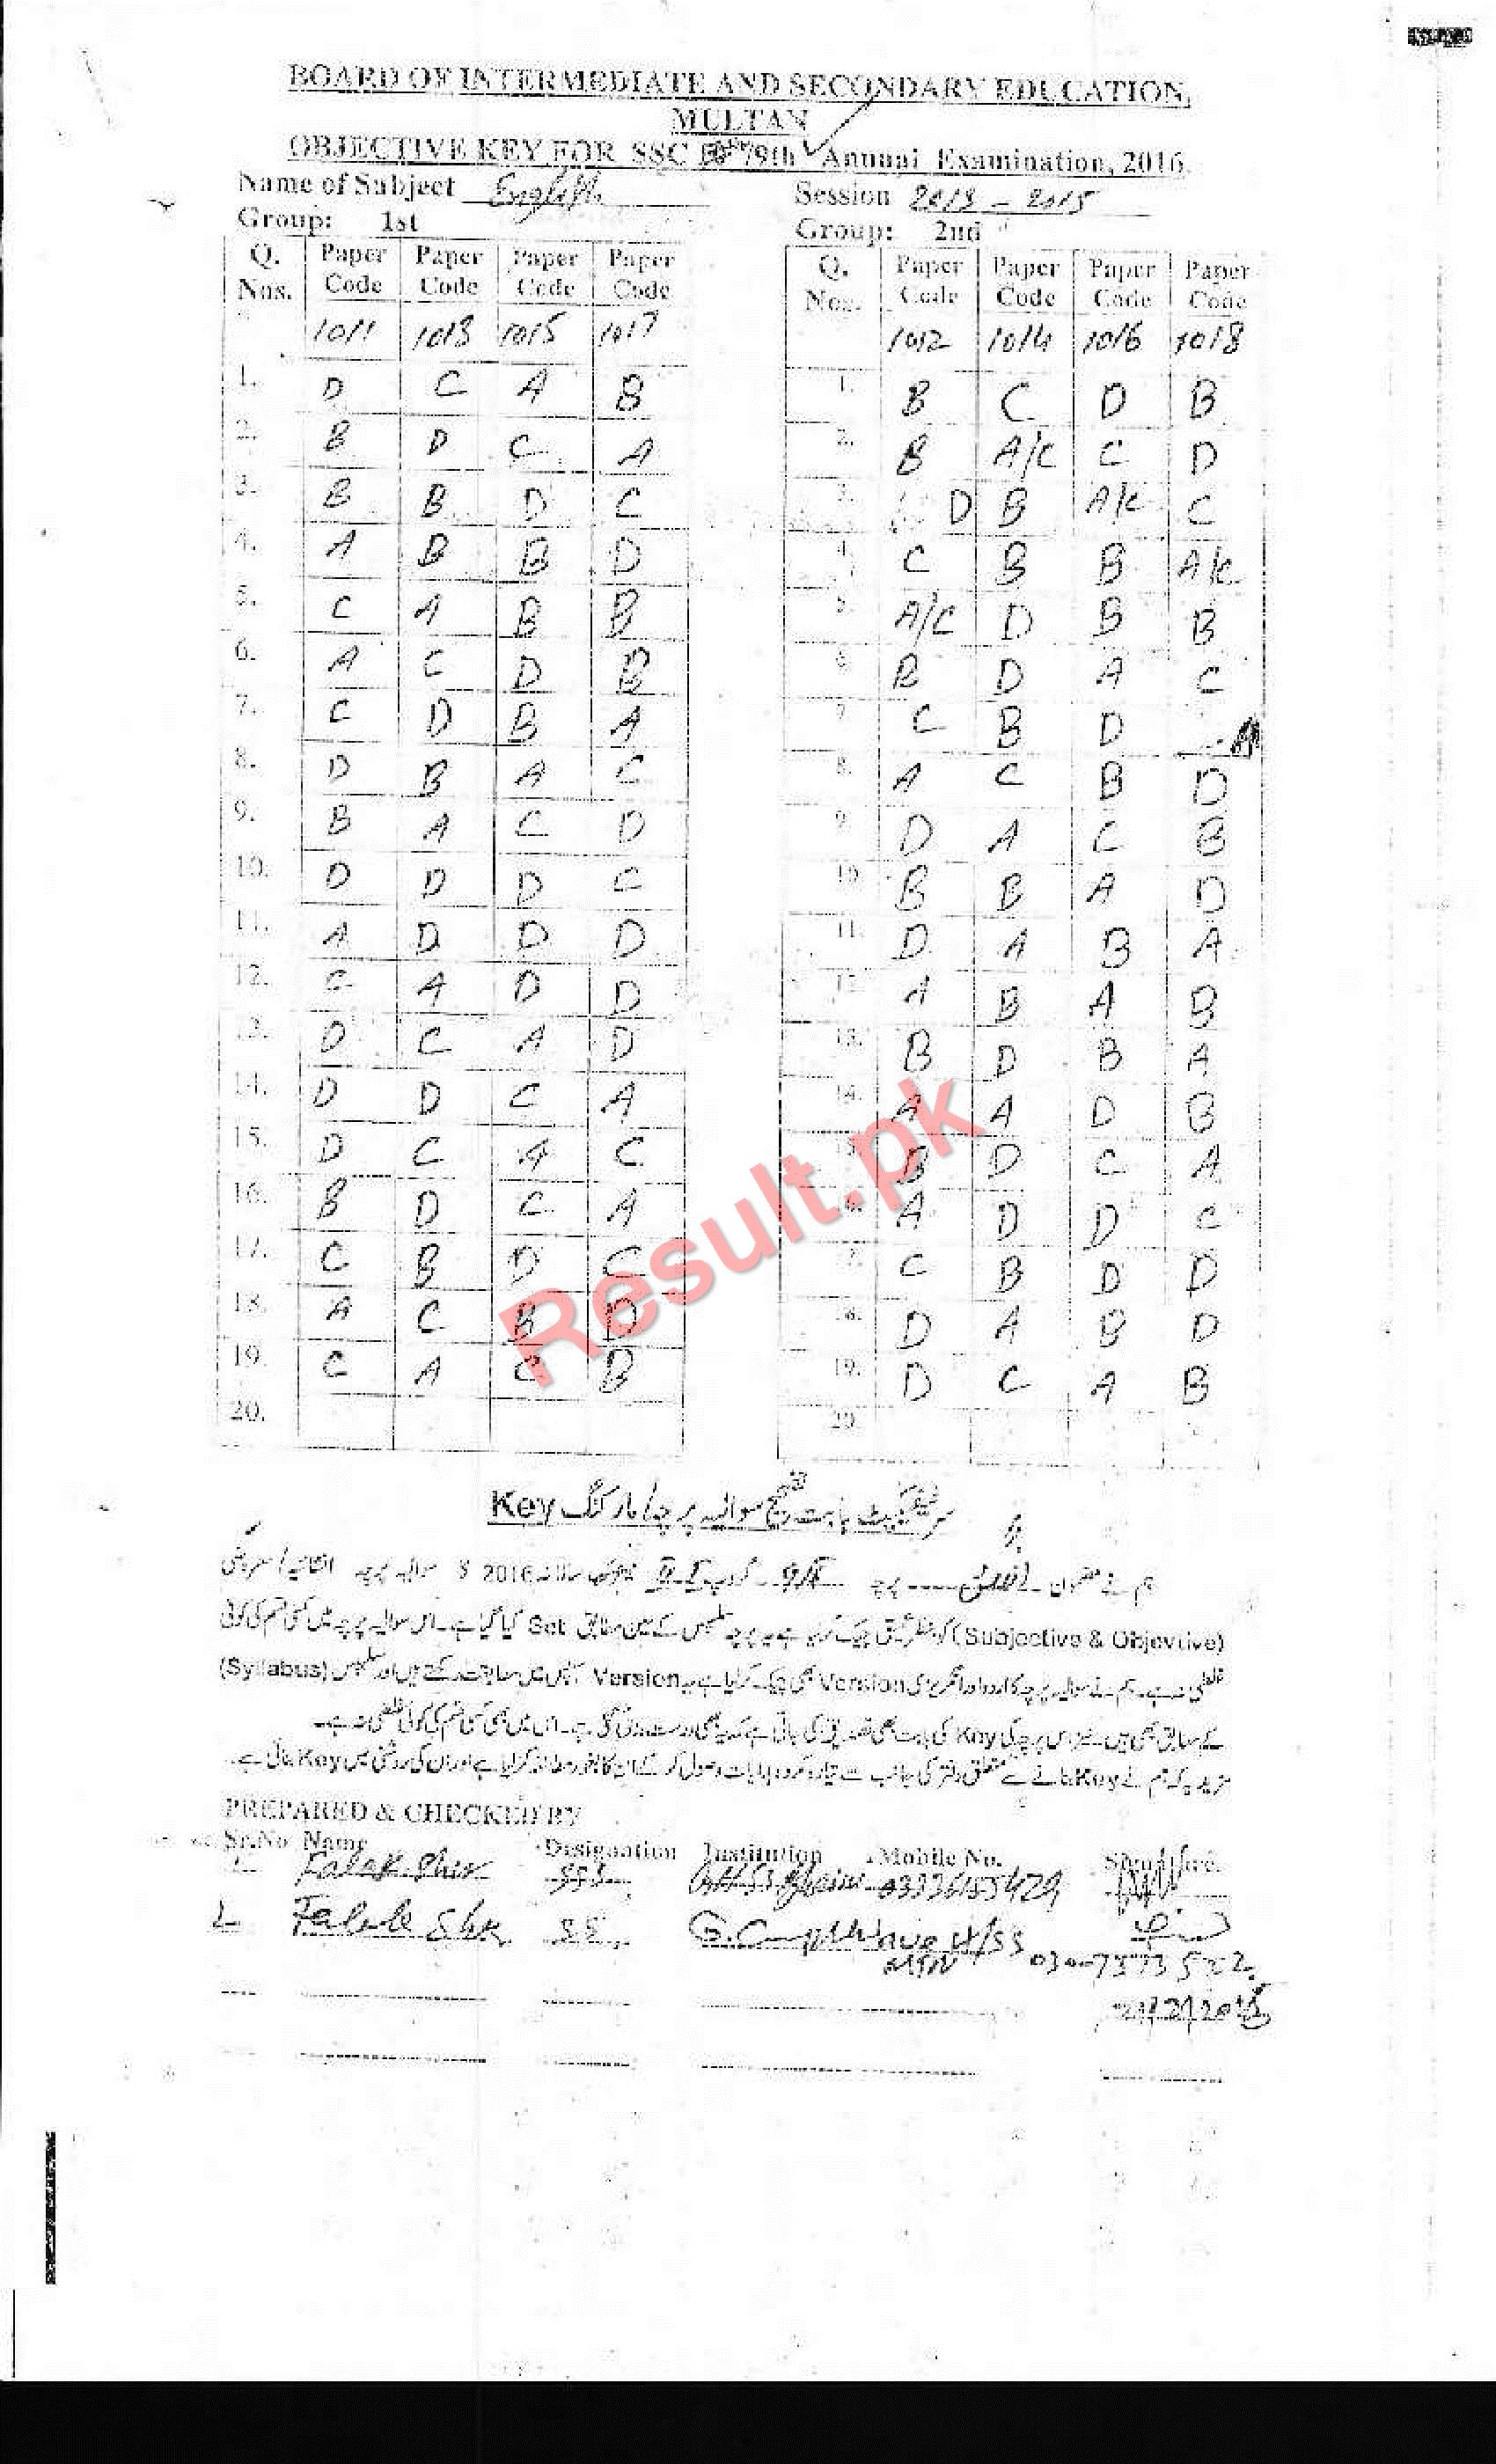 BOARD OF INTERMEDIATE AND SECONDARY EDUCATION,
MULTAN
OBJECTIVE KEY FOR SSC /9th Annual Examination, 2016.
Name of Subject English Session 2013 - 2015
Group: 1st Group: 2nd
Q. Nos. Paper Code Paper Code Paper Code Paper Code Q. Nos. Paper Code Paper Code Paper Code Paper Code
1011 1013 1015 1017 1012 1014 1016 1018
1. D C A B 1. B C D B
2. B D C A 2. B A/C C D
3. B B D C 3. D B A/C C
4. A B B D 4. C B B A/C
5. C A B B 5. A/C D B B
6. A C D B 6. B D A C
7. C D B A 7. C B D A
8. D B A C 8. A C B D
9. B A C D 9. D A C B
10. D D D C 10. B B A D
11. A D D D 11. D A B A
12. C A D D 12. A B A B
13. D C A D 13. B D B A
14. D D C A 14. A A D B
15. D C A C 15. B D C A
16. B D C A 16. A D D C
17. C B D C 17. C B D D
18. A C B D 18. D A B D
19. C A C B 19. D C A B
20. 20.
سرٹیفکیٹ بابت تصحیح سوالیہ پرچہ / مارکنگ Key
ہم نے مضمون پرچہ گروپ سالانہ 2016 کا سوالیہ پرچہ انشائیہ / معروضی
(Subjective & Objevtive) کو چیک کر لیا ہے یہ پرچہ سلیبس کے عین مطابق Set کیا گیا ہے۔ اس سوالیہ پرچہ میں کسی قسم کی کوئی
غلطی نہ ہے۔ ہم نے سوالیہ پرچہ کا اردو اور انگریزی Version بھی چیک کر لیا ہے یہ Version آپس میں مطابقت رکھتے ہیں اور سلیبس (Syllabus)
کے مطابق بھی ہیں۔ اس پرچہ کی Key کی بابت بھی تصدیق کی جاتی ہے کہ یہ بھی درست بنائی گئی ہے۔ اس میں بھی کسی قسم کی کوئی غلطی نہ ہے۔
مزید یہ کہ ہم نے Key بنانے سے متعلق دفتر کی جانب سے تیار کردہ ہدایات وصول کر کے ان کا بغور مطالعہ کر لیا ہے اور ان کی روشنی میں Key بنائی ہے۔
PREPARED & CHECKED BY
Sr.No Name Designation Institution Mobile No. Signature.
SS
21/2/2015
Result.pk